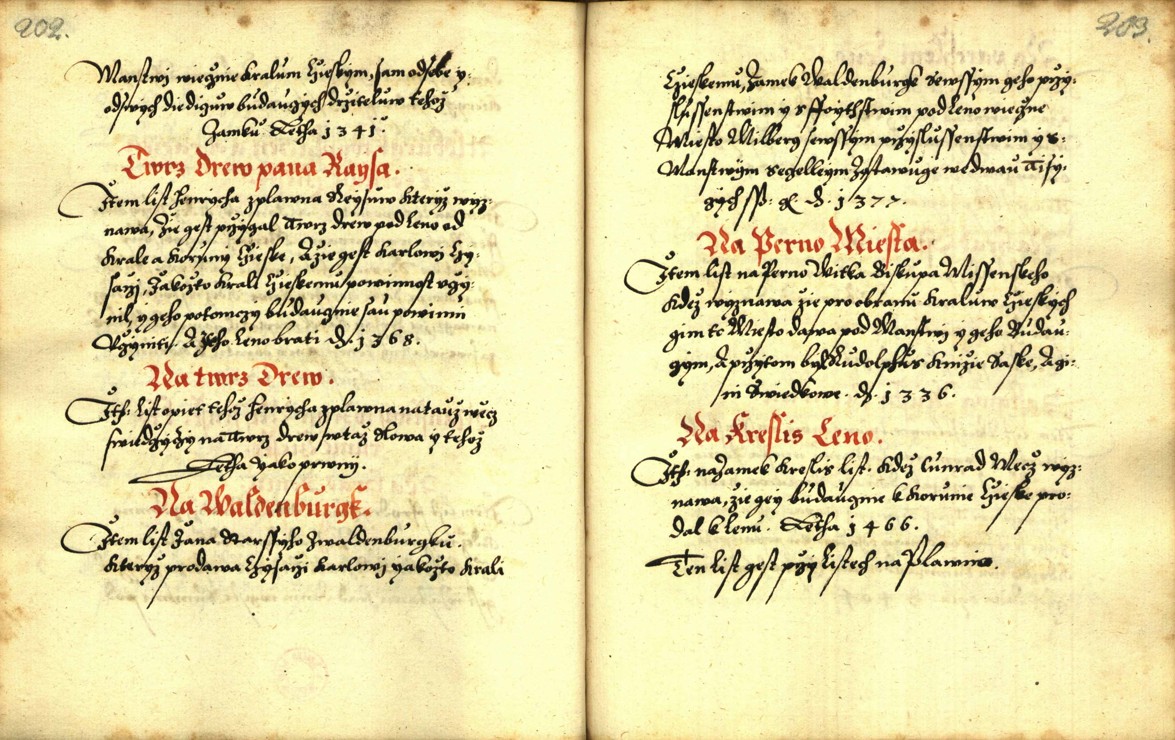 202.
Manstwj wiecznie Kraluom Czeskym, sam od sebe y
od swych diediczuw budauczych drziteluw tehoz
Zamku. Letha 1341.
Twrz Drew pana Raysa.
Item list Henrycha z plawna Reysuw kteryz wyz:
nawa, zie gest przygal Twrz drew pod Leno od
Krale a Koruny Czeske, A zie gest Karlowi Czy:
sarzi, Jakozto Krali Czeskemu powinnost vczy:
nil, y geho potomczy budauczne sau powinni
Vczyniti. A geho Leno brati. d. 1368.
Na twrz Drew.
Ith: list opiet tehoz Henrycha z plawna na tauz wecz
swiedczyczy na Twrz drew w taz slowa y tehoz
Letha yako prwny.
Na Waldenburgk.
Item list Jana starssyho z waldenburgku.
kteryz prodawa Czysarzi Karlowj yakozto Krali
203.
Czeskemu, Zamek Waldenburgk se wssym geho przy:
slussenstwim y s ffoythstwim pod Leno wieczne
Miesto Milberg se wssym przyslussenstwim y s
Manstwym segelleym Zastawuge we dwau Tisy:
czych ss: g. d. 1377.
Na Perno Miesta.
Item list na Perno Witka Biskupa Missenskeho
kdez wyznawa zie pro obranu Kraluw Czeskych
gim to Miesto dawa pod Manstwj y geho Budau:
czym, A przytom byl Rudolphus Knizie Saske, A gi:
ni Swiedkowe. d. 1336.
Na Kreslis Leno.
Ith: na Zamek Kreslis list. kdez Cunrad Mecz wyz:
nawa, zie gey budauczne k Korunie Czeske pro:
dal k Lenu. Letha 1466.
Ten list gest przy Listech na Plawno.